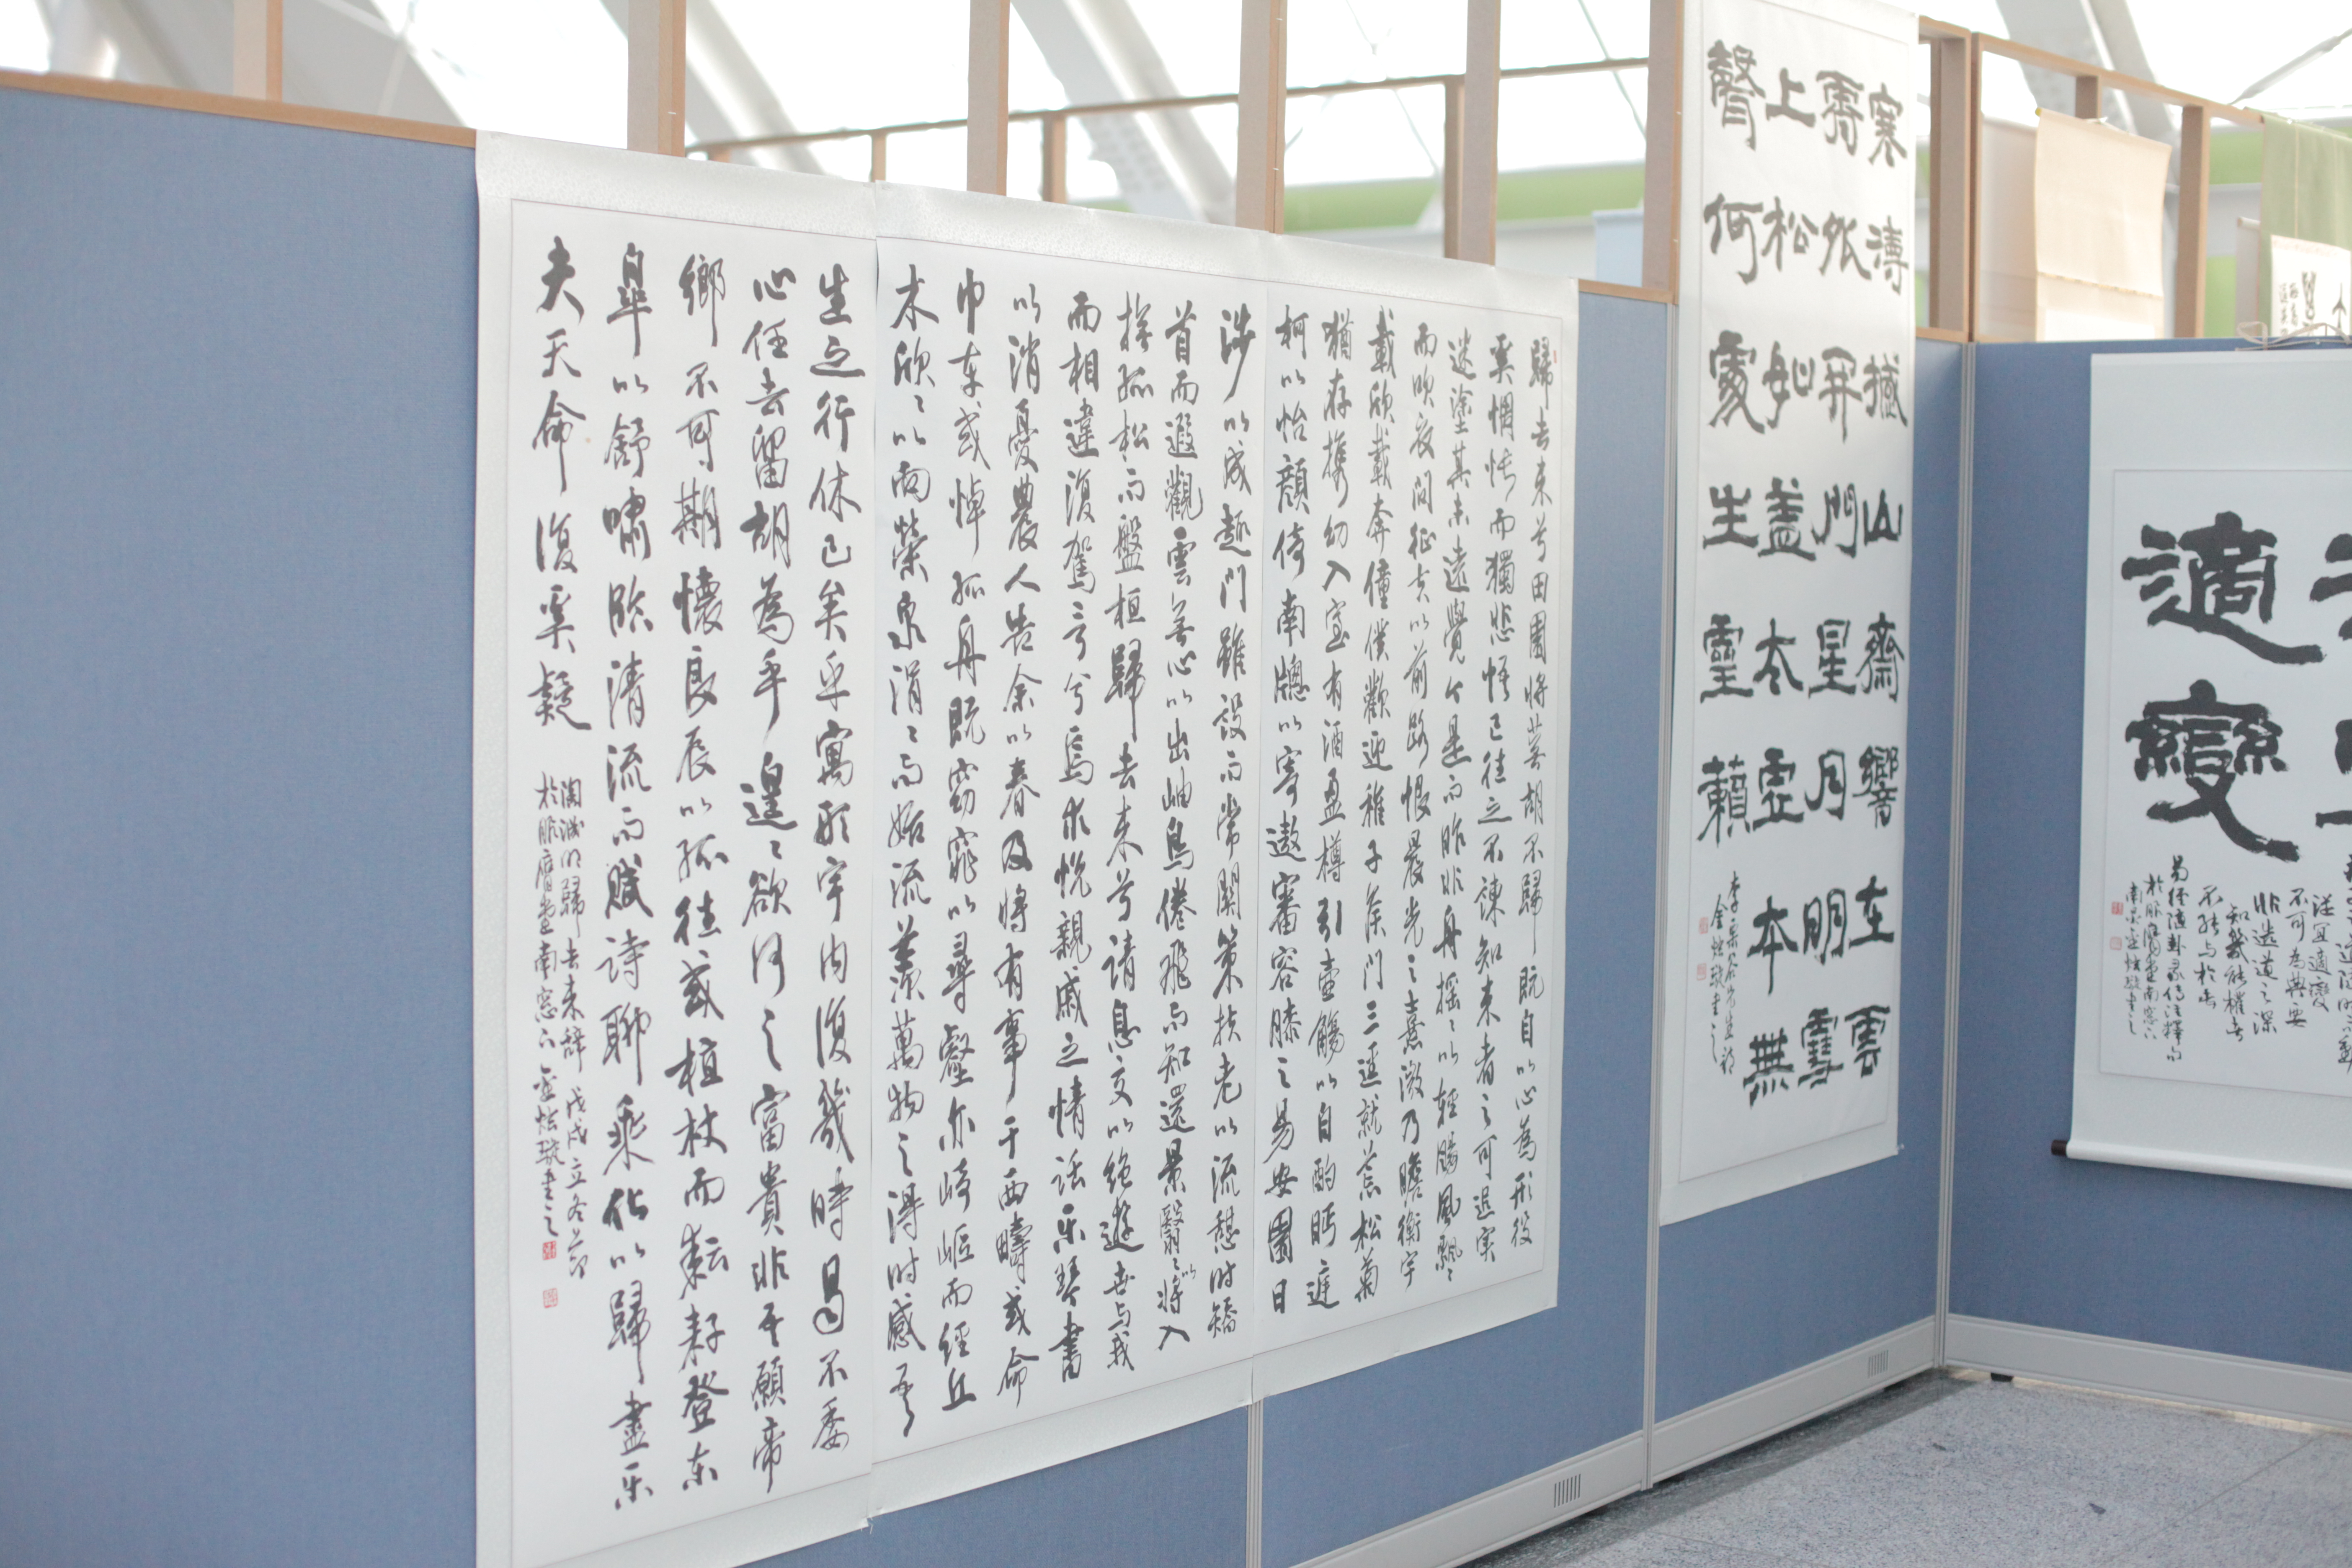 歸去來兮田園將蕪胡不歸既自以心為形役
奚惆悵而獨悲悟已往之不諫知來者之可追寔
迷塗其未遠覺今是而昨非舟搖〻以輕颺風飄〻
而吹衣問征夫以前路恨晨光之熹微乃瞻衡宇
載欣載奔僮僕歡迎稚子候門三逕就荒松菊
猶存攜幼入室有酒盈樽引壺觴以自酌眄庭
柯以怡顏倚南牕以寄遨審容膝之易安園日
涉以成趣門雖設而常關策扶老以流憩時矯
首而遐觀雲無心以出岫鳥倦飛而知還景翳〻以將入
撫孤松而盤桓歸去來兮請息交以絶遊世与我
而相違復駕言兮焉求悅親戚之情話乐琴書
以消憂農人告余以春及將有事于西疇或命
巾車或棹孤舟既窈窕以尋壑亦崎嶇而經丘
木欣〻以向榮泉涓〻而始流羨萬物之得時感吾
生之行休已矣乎寓形宇內復幾時曷不委
心任去留胡為乎遑〻欲何之富貴非吾願帝
鄉不可期懷良辰以孤往或植杖而耘耔登东
皐以舒嘯臨清流而賦詩聊乘化以歸盡乐
夫天命復奚疑
陶淵明歸去来辞 戊戌立冬節
於臥膺堂南窓下 金炫璇書之
寒濤撼山齋響在雲
霽外開門星月明雪
上松如盖太虛本無
聲何處生靈籟
李栗谷先生詩
金炫璇書之
適變
從宜適變
不可為典要
非造道之深
知幾能權者
不能与於此
易經隨卦彖傳注釋句
於臥膺堂南窓下